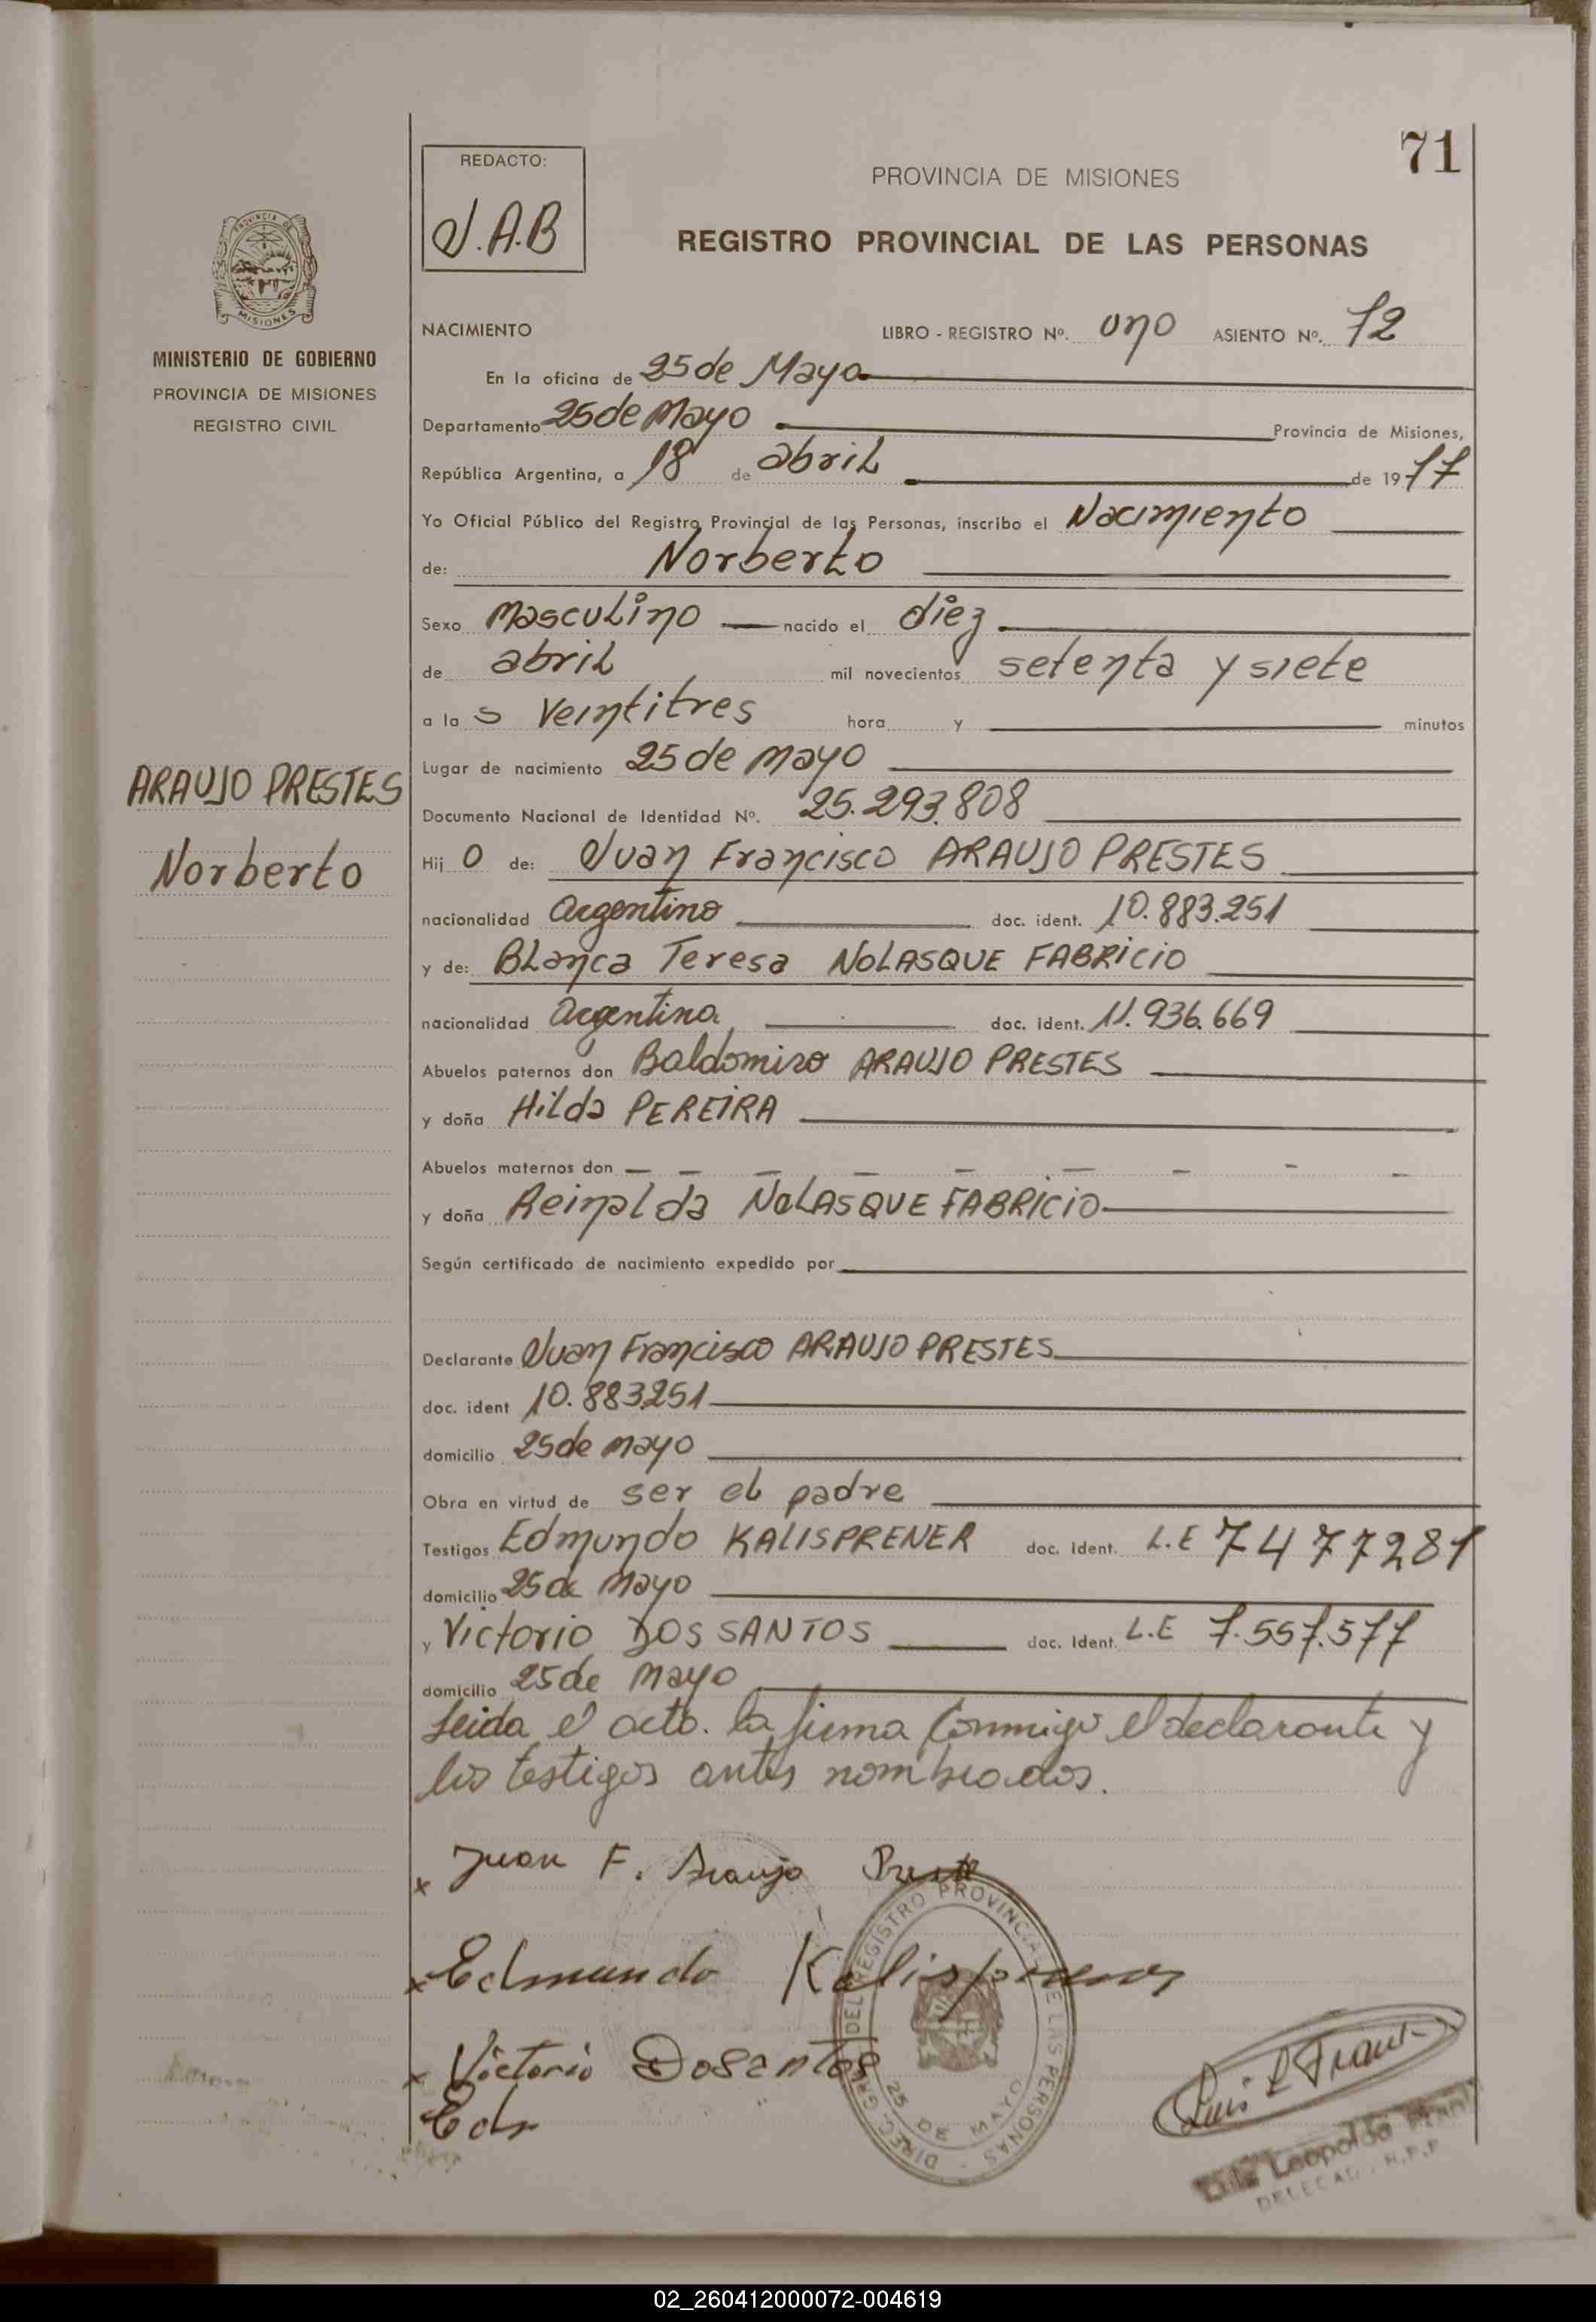 71
REDACTO:
J.A.B
PROVINCIA DE MISIONES
REGISTRO PROVINCIAL DE LAS PERSONAS
PROVINCIA DE
MISIONES
MINISTERIO DE GOBIERNO
PROVINCIA DE MISIONES
REGISTRO CIVIL
NACIMIENTO LIBRO - REGISTRO Nº. uno ASIENTO Nº. 72
En la oficina de 25 de Mayo
Departamento 25 de Mayo Provincia de Misiones,
República Argentina, a 18 de abril de 1977
Yo Oficial Público del Registro Provincial de las Personas, inscribo el Nacimiento
de: Norberto
Sexo Masculino nacido el diez
de abril mil novecientos setenta y siete
a las veintitres hora y minutos
Lugar de nacimiento 25 de mayo
Documento Nacional de Identidad Nº. 25.293.808
ARAUJO PRESTES
Norberto
Hijo de: Juan Francisco ARAUJO PRESTES
nacionalidad Argentino doc. ident. 10.883.251
y de: Blanca Teresa NOLASQUE FABRICIO
nacionalidad Argentina doc. ident. 11.936.669
Abuelos paternos don Baldomiro ARAUJO PRESTES
y doña Hilda PEREIRA
Abuelos maternos don — — — — — — — — —
y doña Reinalda NOLASQUE FABRICIO
Según certificado de nacimiento expedido por
Declarante Juan Francisco ARAUJO PRESTES
doc. ident 10.883.251
domicilio 25 de mayo
Obra en virtud de ser el padre
Testigos Edmundo KALISPRENER doc. ident. L.E 7477281
domicilio 25 de Mayo
y Victorio DOS SANTOS doc. Ident. L.E 7.557.577
domicilio 25 de Mayo
Leida el acta. la firma conmigo el declarante y
los testigos antes nombrados.
x Juan F. Araujo
x Edmundo Kalisprener
x Victorio Dosantos
Edr
DIREC. GRAL. DEL REGISTRO PROVINCIAL DE LAS PERSONAS
25 DE MAYO
Luis L
Luis Leopoldo
DELEGADO R.P.P.
02_260412000072-004619